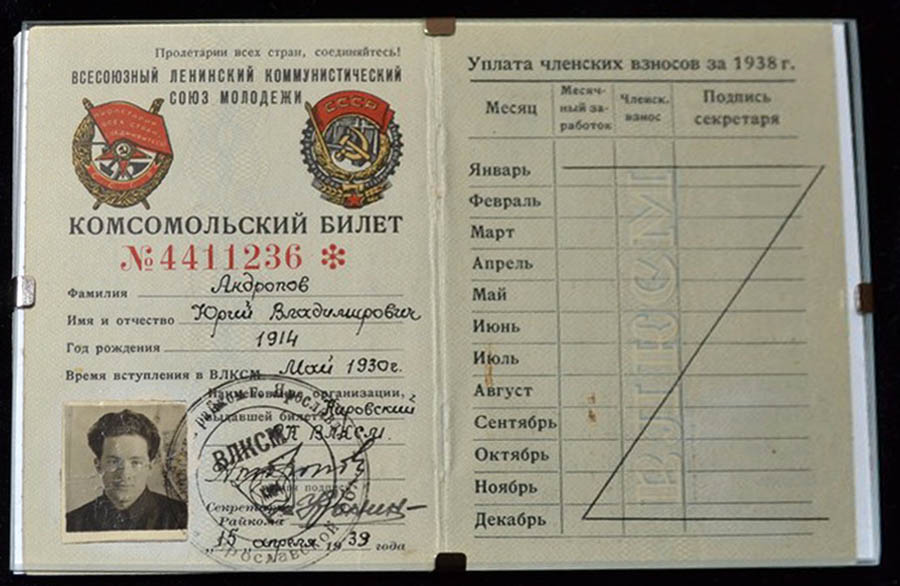 Пролетарии всех стран, соединяйтесь!
ВСЕСОЮЗНЫЙ ЛЕНИНСКИЙ КОММУНИСТИЧЕСКИЙ
СОЮЗ МОЛОДЕЖИ
ПРОЛЕТАРИИ
ВСЕХ СТРАН
СОЕДИНЯЙТЕСЬ
СССР
СССР
КОМСОМОЛЬСКИЙ БИЛЕТ
№4411236 *
Фамилия Андропов
Имя и отчество Юрий Владимирович
Год рождения 1914
Время вступления в ВЛКСМ Май 1930г.
Наименование организации,
выдавшей билет Кировский
РК ВЛКСМ.
ВЛКСМ
Личная подпись
Секретарь
Райкома
"15" апреля 1939 года
Уплата членских взносов за 1938 г.
Месяц
Месяч-
ный за-
работок
Членск.
взнос
Подпись
секретаря
Январь
Февраль
Март
Апрель
Май
Июнь
Июль
Август
Сентябрь
Октябрь
Ноябрь
Декабрь
ВЛКСМ